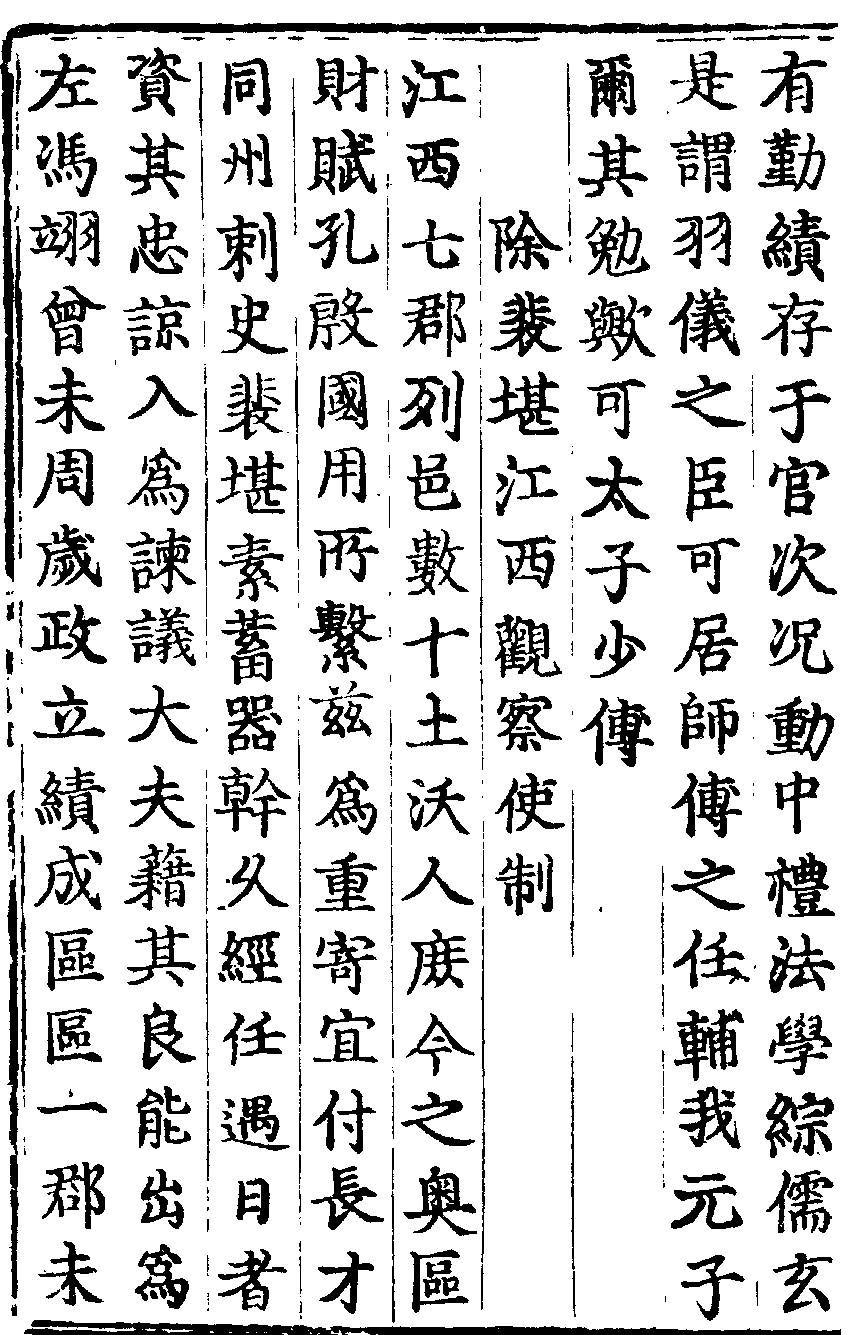 有勤績存于官次况動中禮法學綜儒玄
是謂羽儀之臣可居師傅之任輔我元子
爾其勉歟可太子少傅
除裴堪江西觀察使制
江西七郡列邑數十土沃人庶今之奥區
財賦孔殷國用所繫兹爲重寄宜付長才
同州刺史裴堪素蓄器幹久經任遇日者
資其忠諒入爲諫議大夫藉其良能出爲
左馮翊曾未周歲政立績成區區一郡未